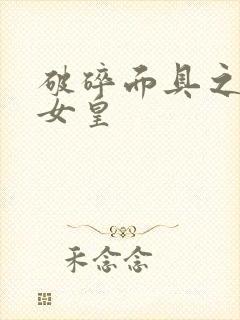 破碎而具之
女皇
禾念念